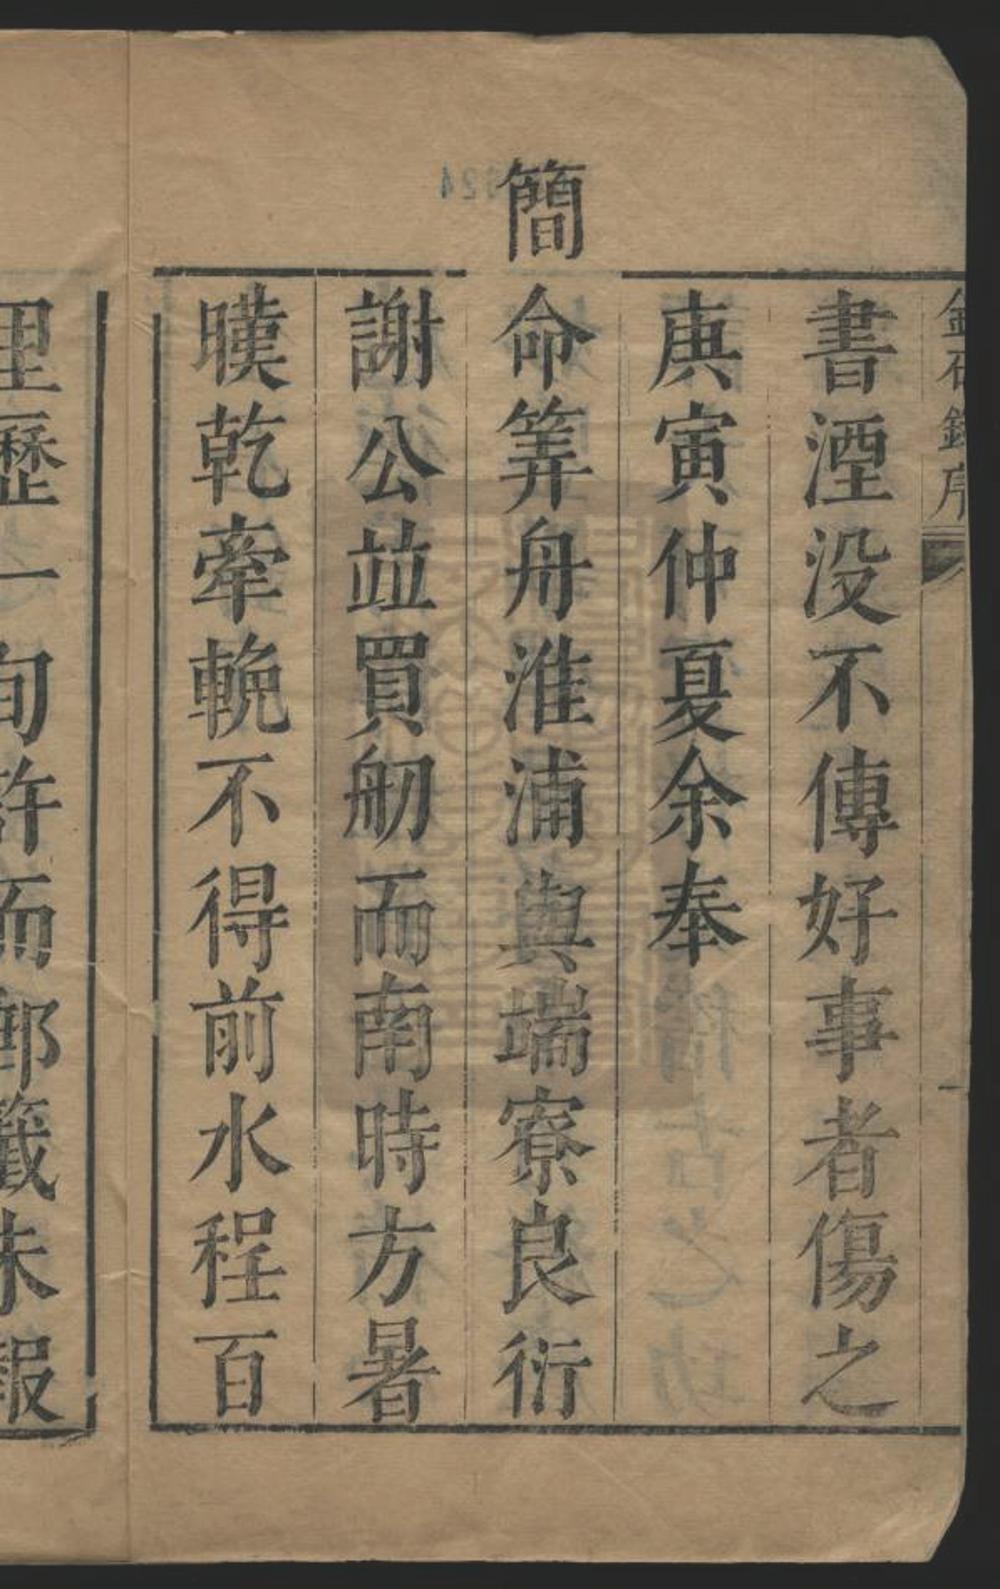 金石
一
書湮没不傳好事者傷之
庚寅仲夏余奉
簡命筭舟淮浦與端寮良衍
謝公竝買舠而南時方暑
暵乾牽輓不得前水程百
里歷一旬許而郵籤未報